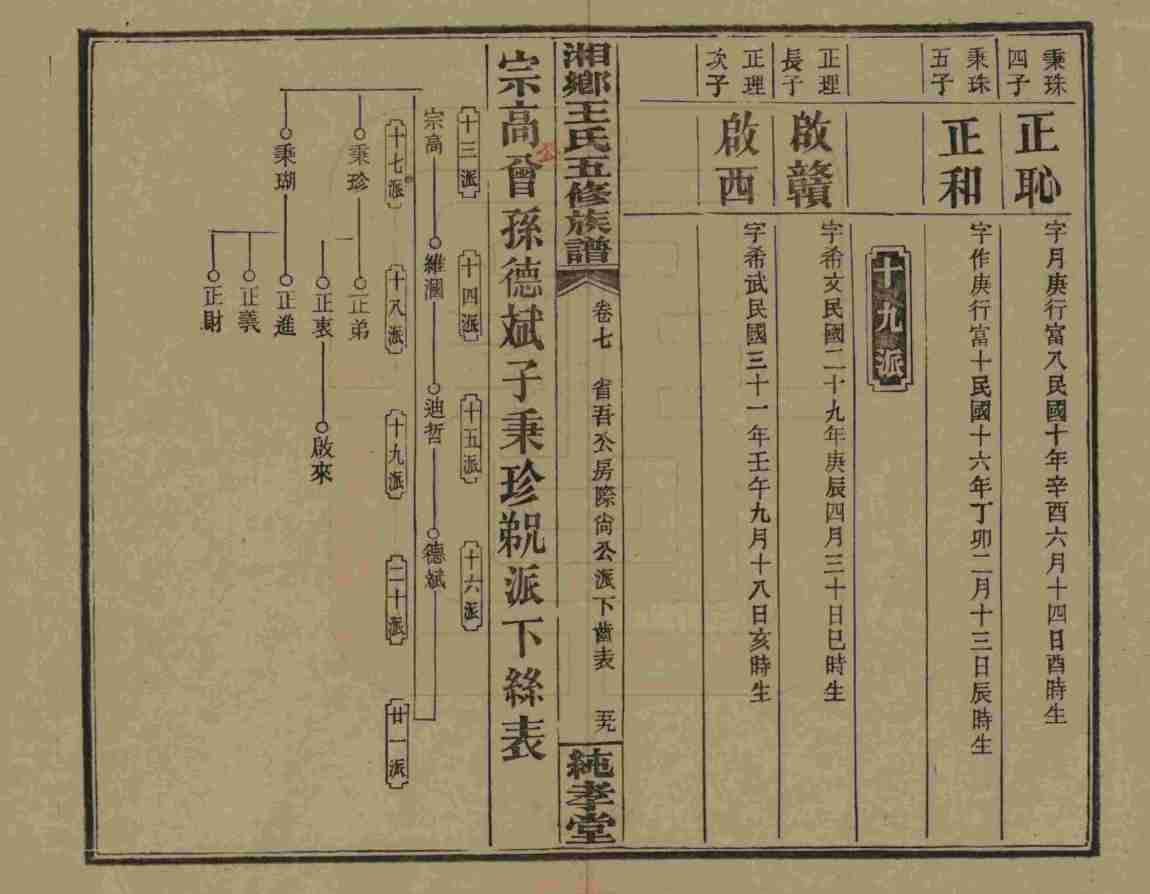 秉珠
四子
正恥
字月庚行富八民國十年辛酉六月十四日酉時生
秉珠
五子
正和
字作庚行富十民國十六年丁卯二月十三日辰時生
十九派
正理
長子
啟贛
字希文民國二十九年庚辰四月三十日巳時生
正理
次子
啟西
字希武民國三十一年壬午九月十八日亥時生
湘鄉王氏五修族譜
卷七 省吾公房際尙公派下齒表
純孝堂
宗高曾孫德斌子秉珍 派下絲表
公
十三派
十四派
十五派
十六派
宗高
維瀾
迪哲
德斌
十七派
十八派
十九派
二十派
廿一派
秉珍
正弟
正衷
啟來
秉瑚
正進
正義
正財